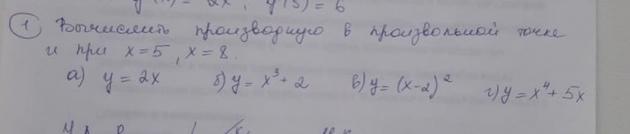 = 2x, y'(3) = 6
① Вычислить производную в произвольной точке
и при x = 5, x = 8.
а) y = 2x б) y = x³ + 2 в) y = (x-2)² г) y = x⁴ + 5x